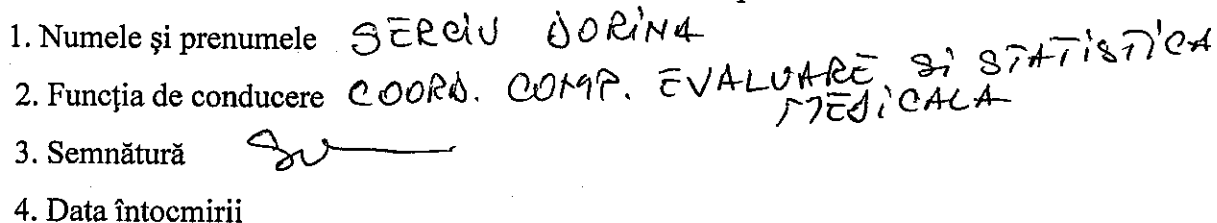 1. Numele și prenumele SERCIU DORINA
2. Funcția de conducere COORD. COMP. EVALUARE SI STATISTICA
MEDICALA
3. Semnătură
4. Data întocmirii